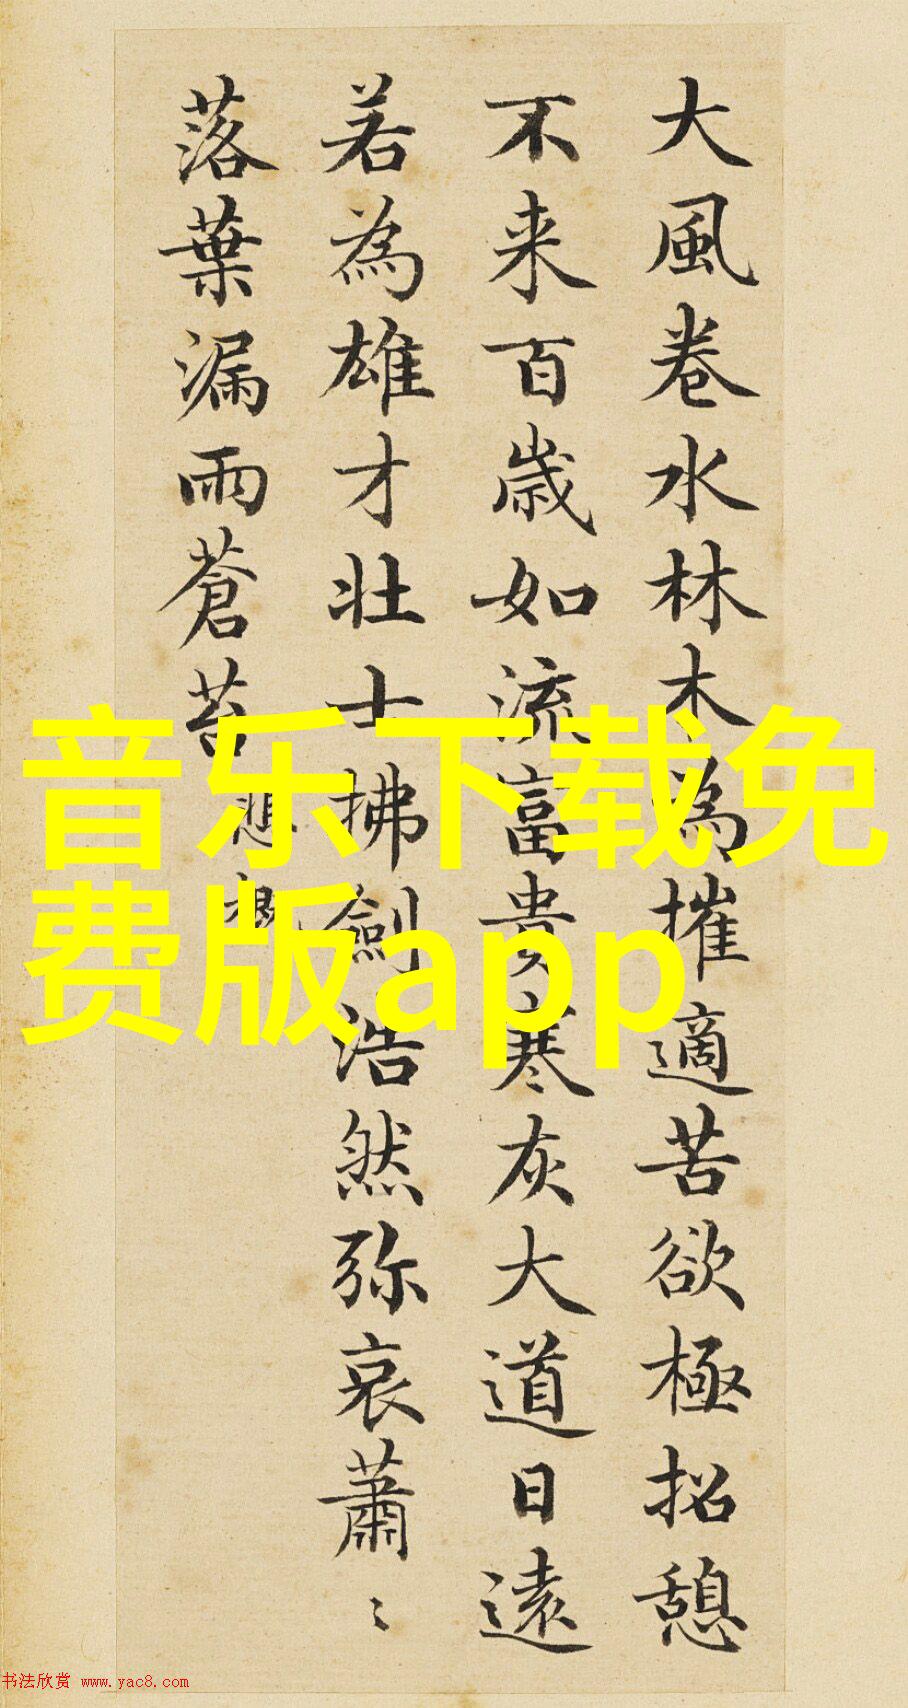 大風卷水林木為摧適苦欲極招憩
不来百歳如流富貴寒灰大道日遠
若為雄才壮士拂劍浩然弥哀蕭〻
落葉漏雨蒼苔
悲慨
音乐下载免
费版app
书法欣赏 www.yac8.com